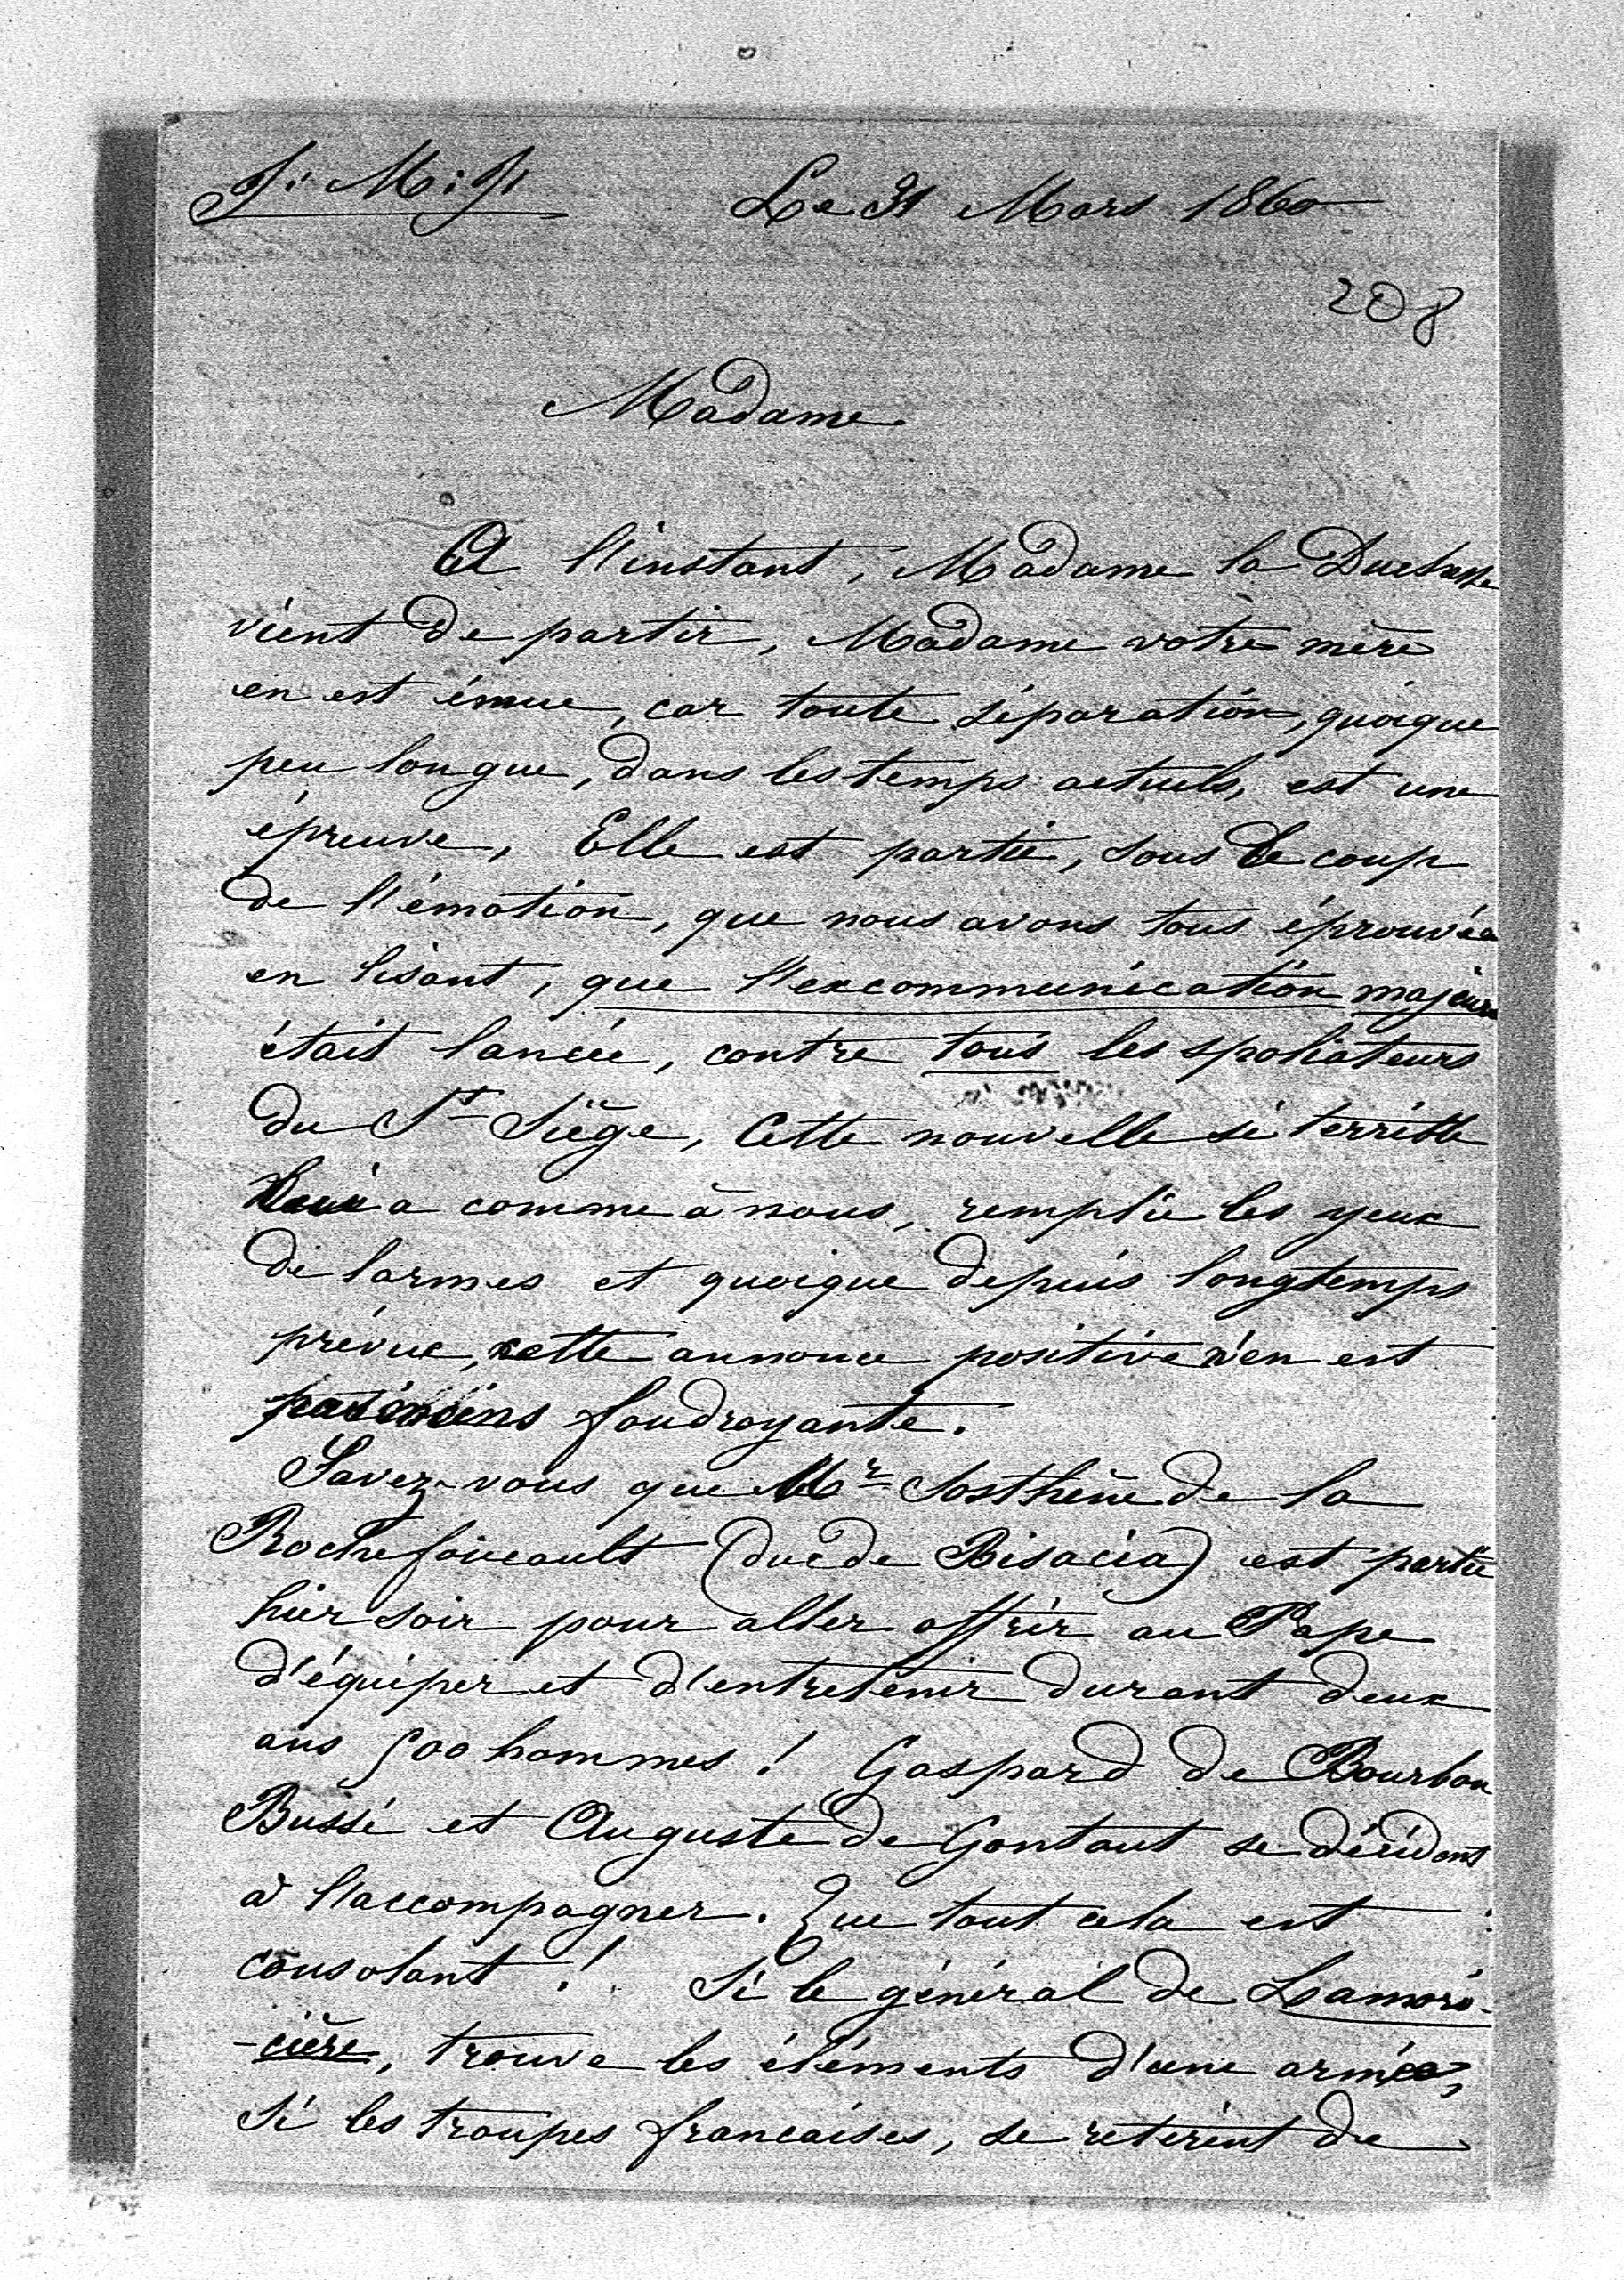 J. M. J.
Le 31 Mars 1860
208
Madame
A l'instant, Madame la Duchesse
vient de partir, Madame votre mère
en est émue, car toute séparation, quoique
peu longue, dans les temps actuels, est une
épreuve, Elle est partie, sous le coup
de l'émotion, que nous avons tous éprouvée
en lisant, que l'excommunication majeure
était lancée, contre tous les spoliateurs
du St Siège, Cette nouvelle si terrible
a comme à nous, remplie les yeux
de larmes et quoique depuis longtemps
prévue, cette annonce positive n'en est
pas moins foudroyante.
Savez-vous que Mr Sosthène de la
Rochefoucault (duc de Bisacia) est partie
hier soir pour aller offrir au Pape
d'équiper et d'entretenir durant deux
ans 500 hommes ! Gaspard de Bourbon
Bussé et Auguste de Gontaut se décident
à l'accompagner. Que tout cela est
consolant ! Si le général de Lamori-
-cière, trouve les éléments d'une armée,
Si les troupes francaises, se retirent de